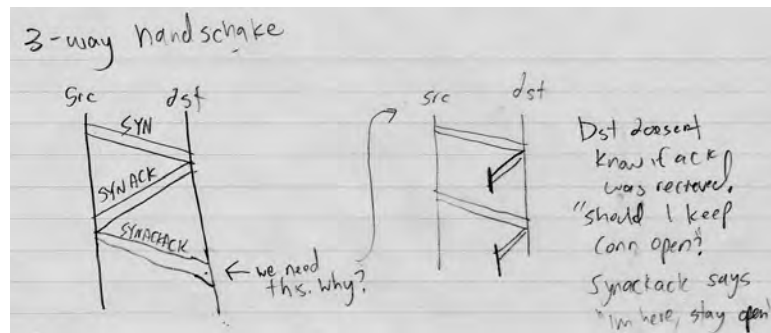 3-way handschake
Src dst
SYN
SYNACK
SYNACKACK
← we need
this. why?
src dst
Dst doesent
know if ack
was recieved.
"should I keep
conn open?
Synackack says
"im here, stay open"